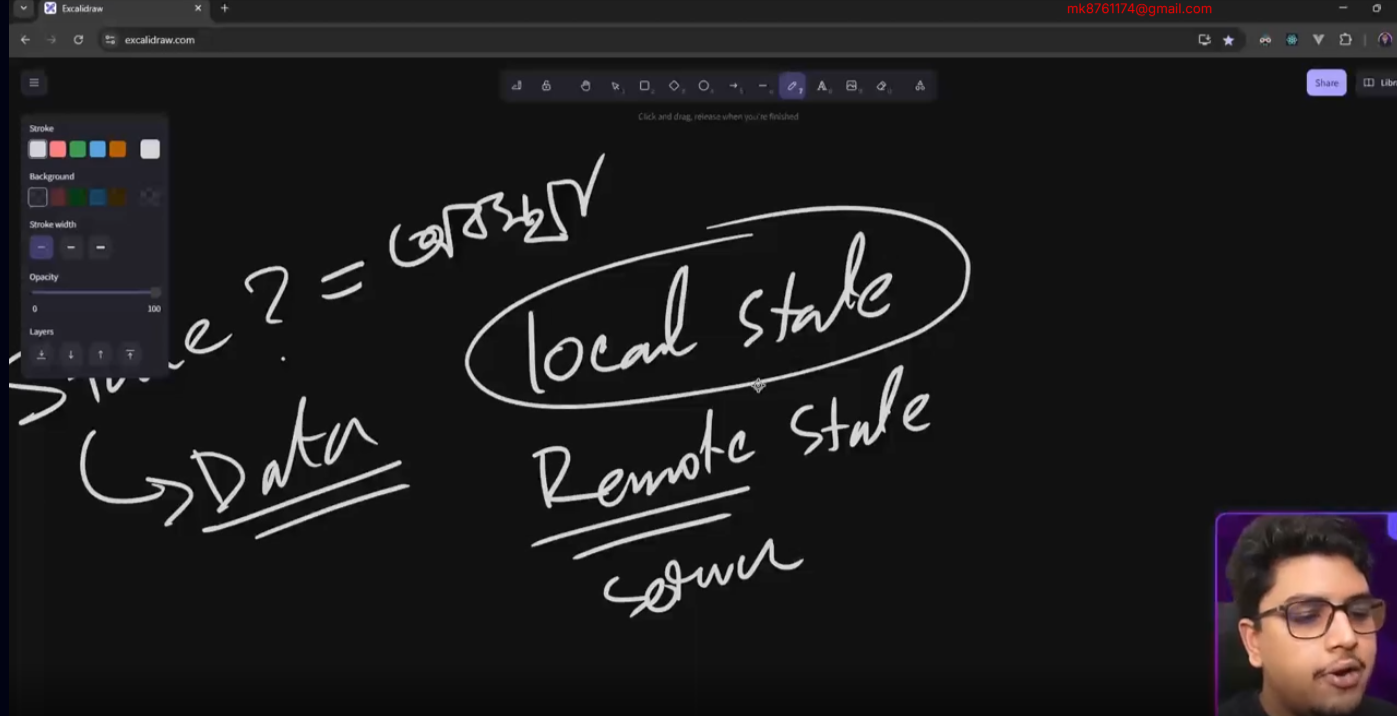 Excalidraw
mk8761174@gmail.com
excalidraw.com
Share
Libr
Click and drag, release when you're finished
Stroke
Background
Stroke width
Opacity
0 100
Layers
? =
local state
Data
Remote state